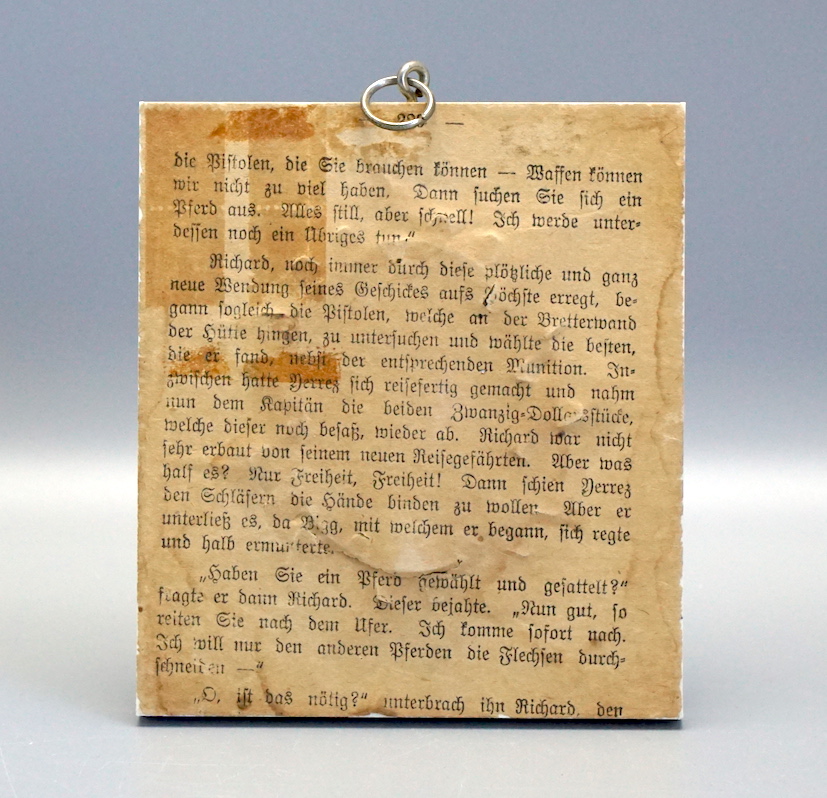 die Pistolen, die Sie brauchen können — Waffen können
wir nicht zu viel haben. Dann suchen Sie sich ein
Pferd aus. Alles still, aber schnell! Ich werde unter-
dessen noch ein Übriges tun.“
Richard, noch immer durch diese plötzliche und ganz
neue Wendung seines Geschickes aufs höchste erregt, be-
gann sogleich die Pistolen, welche an der Bretterwand
der Hütte hingen, zu untersuchen und wählte die besten,
die er fand, nebst der entsprechenden Munition. In-
zwischen hatte Yerrez sich reisefertig gemacht und nahm
nun dem Kapitän die beiden Zwanzig-Dollarsstücke,
welche dieser noch besaß, wieder ab. Richard war nicht
sehr erbaut von seinem neuen Reisegefährten. Aber was
half es? Nur Freiheit, Freiheit! Dann schien Yerrez
den Schläfern die Hände binden zu wollen. Aber er
unterließ es, da mit welchem er begann, sich regte
und halb ermunterte.
„Haben Sie ein Pferd gewählt und gesattelt?“
fragte er dann Richard. Dieser bejahte. „Nun gut, so
reiten Sie nach dem Ufer. Ich komme sofort nach.
Ich will nur den anderen Pferden die Flechsen durch-
schneiden —“
„O, ist das nötig?“ unterbrach ihn Richard, den